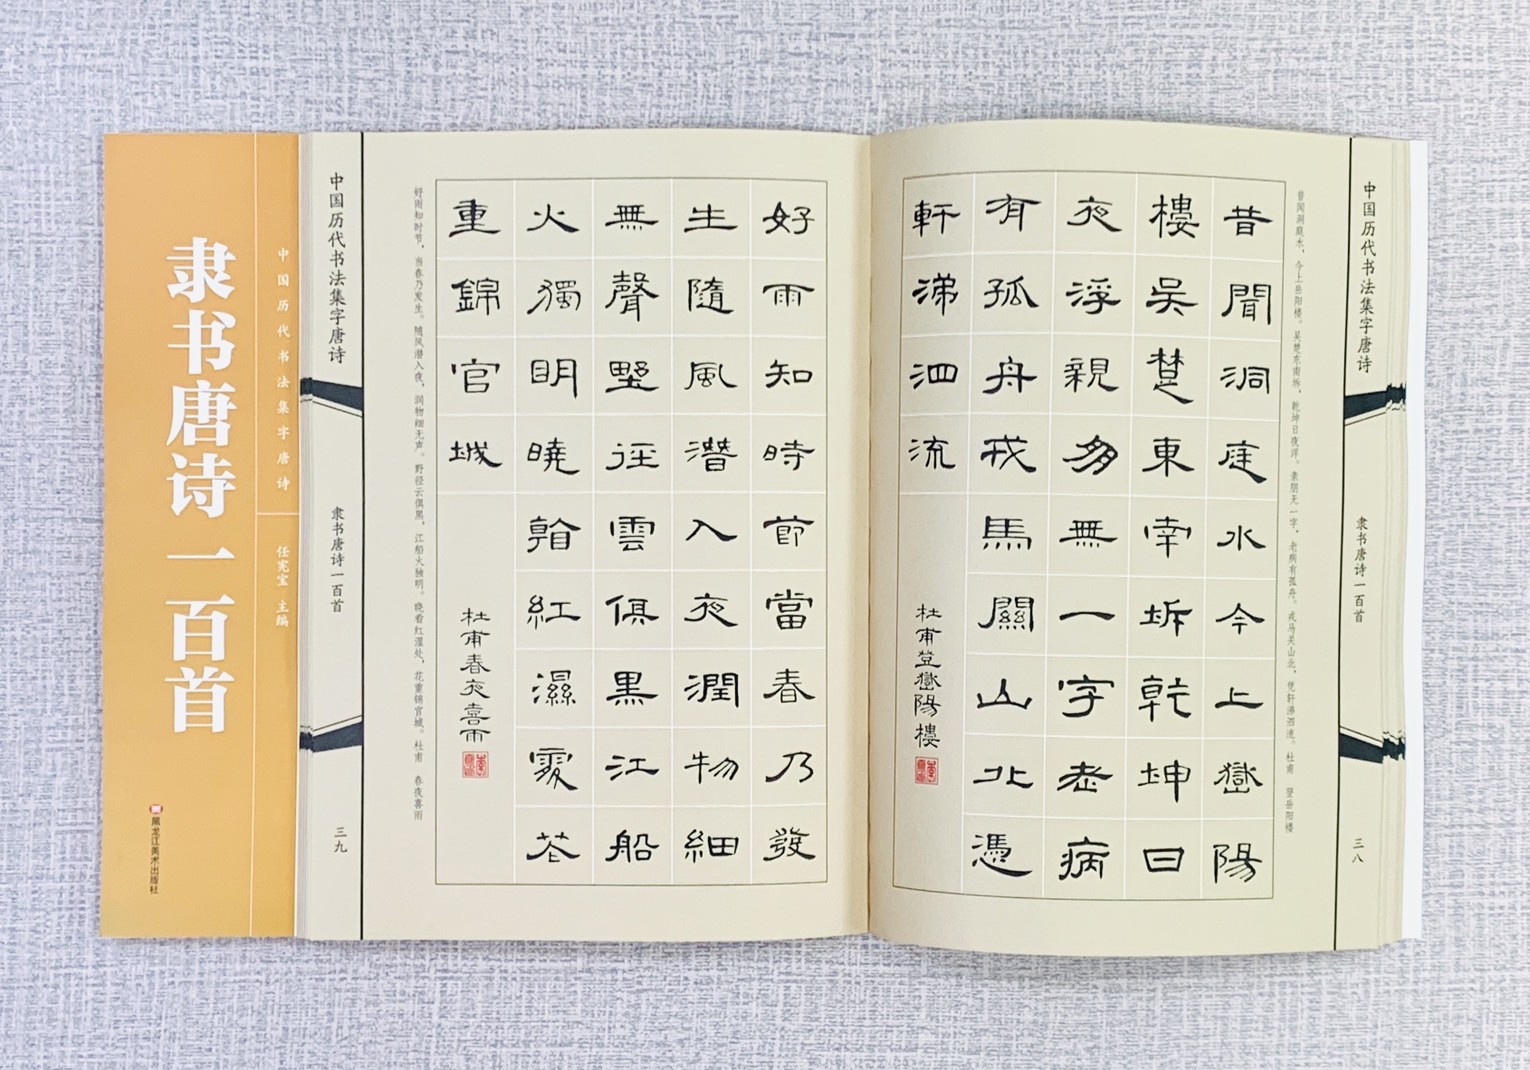 中国历代书法集字唐诗
隶书唐诗一百首
三八
昔闻洞庭水，今上岳阳楼。吴楚东南坼，乾坤日夜浮。亲朋无一字，老病有孤舟。戎马关山北，凭轩涕泗流。杜甫 登岳阳楼
昔聞洞庭水今上嶽陽
樓吳楚東南坼乾坤日
夜浮親朋無一字老病
有孤舟戎馬關山北憑
軒涕泗流
杜甫登嶽陽樓
好雨知時節當春乃發
生隨風潛入夜潤物細
無聲野徑雲俱黑江船
火獨明曉看紅濕處花
重錦官城
杜甫春夜喜雨
好雨知时节，当春乃发生。随风潜入夜，润物细无声。野径云俱黑，江船火独明。晓看红湿处，花重锦官城。杜甫 春夜喜雨
中国历代书法集字唐诗
隶书唐诗一百首
三九
中国历代书法集字唐诗
任宪宝 主编
隶书唐诗一百首
黑龙江美术出版社